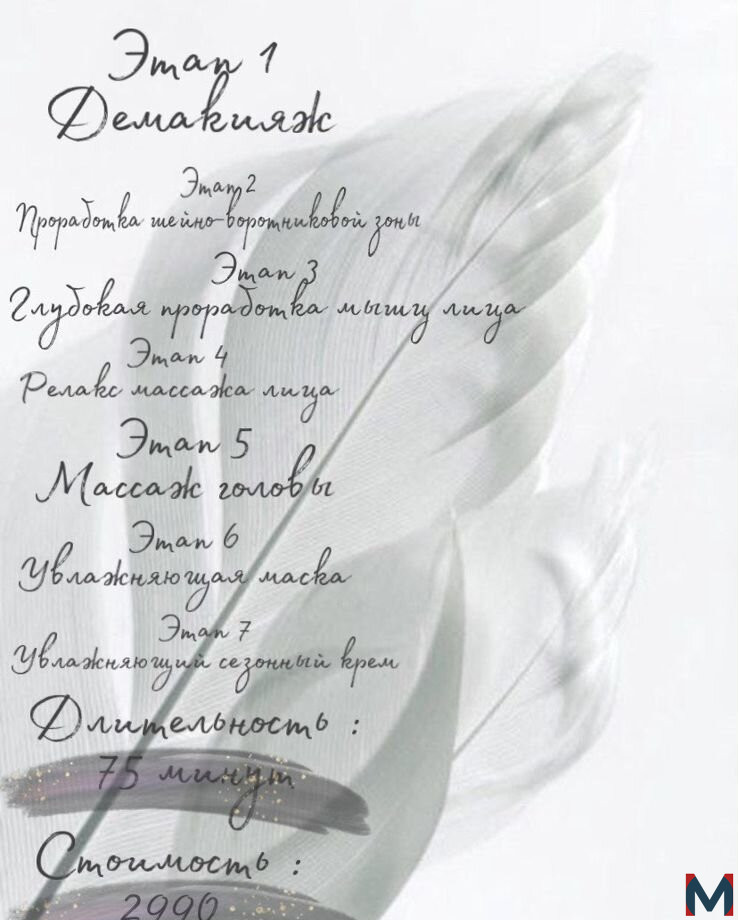 Этап 1
Демакияж
Этап 2
Проработка шейно-воротниковой зоны
Этап 3
Глубокая проработка мышц лица
Этап 4
Релакс массажа лица
Этап 5
Массаж головы
Этап 6
Увлажняющая маска
Этап 7
Увлажняющий сезонный крем
Длительность :
75 минут
Стоимость :
2990
M